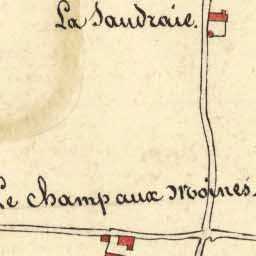 La Saudraie.
Le Champ aux Moines.